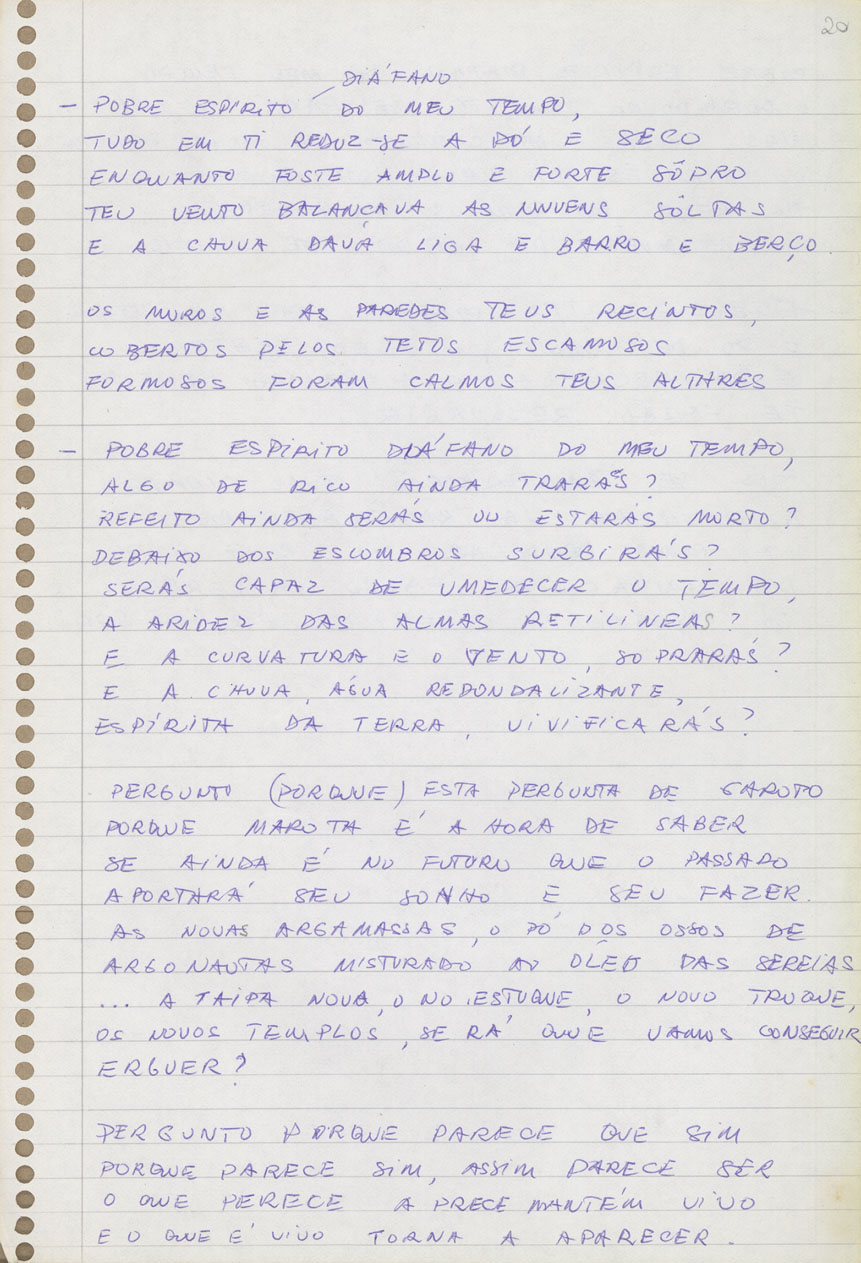 20
DIÁFANO
— POBRE ESPÍRITO DO MEU TEMPO,
TUDO EM TI REDUZ-SE A PÓ E SECO
ENQUANTO FOSTE AMPLO E FORTE SÔPRO
TEU VENTO BALANÇAVA AS NUVENS SÔLTAS
E A CHUVA DAVA LIGA E BARRO E BERÇO.
OS MUROS E AS PAREDES TEUS RECINTOS,
COBERTOS PELOS TETOS ESCAMOSOS
FORMOSOS FORAM CALMOS TEUS ALTARES
— POBRE ESPÍRITO DIÁFANO DO MEU TEMPO,
ALGO DE RICO AINDA TRARÁS?
REFEITO AINDA SERÁS OU ESTARÁS MORTO?
DEBAIXO DOS ESCOMBROS SURGIRÁS?
SERÁS CAPAZ DE UMEDECER O TEMPO,
A ARIDEZ DAS ALMAS RETILINEAS?
E A CURVATURA E O VENTO, SOPRARÁS?
E A CHUVA, ÁGUA REDONDALIZANTE,
ESPÍRITA DA TERRA, VIVIFICARÁS?
PERGUNTO (PORQUE) ESTA PERGUNTA DE GAROTO
PORQUE MAROTA É A HORA DE SABER
SE AINDA É NO FUTURO QUE O PASSADO
APORTARÁ SEU SONHO E SEU FAZER.
AS NOVAS ARGAMASSAS, O PÓ DOS OSSOS DE
ARGONAUTAS MISTURADO AO ÓLEO DAS SEREIAS
... A TAIPA NOVA, O NO ESTUQUE, O NOVO TRUQUE,
OS NOVOS TEMPLOS, SERÁ QUE VAMOS CONSEGUIR
ERGUER?
PERGUNTO PORQUE PARECE QUE SIM
PORQUE PARECE SIM, ASSIM PARECE SER
O QUE PERECE A PRECE MANTÉM VIVO
E O QUE É VIVO TORNA A APARECER.